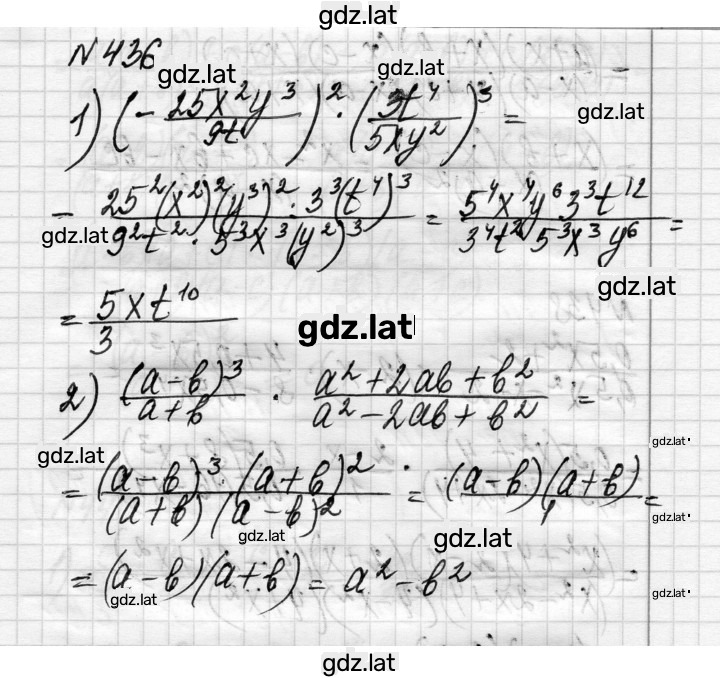 gdz.lat
N 436
gdz.lat gdz.lat
1) (- 25x²y³ / 9t)² · (3t⁴ / 5xy²)³ = gdz.lat
= 25²(x²)²(y³)² · 3³(t⁴)³ / 9²t² · 5³x³(y²)³ = 5⁴x⁴y⁶3³t¹² / 3⁴t² 5³x³y⁶ =
gdz.lat gdz.lat
= 5xt¹⁰ / 3 gdz.lat
2) (a-b)³ / a+b · a²+2ab+b² / a²-2ab+b² =
gdz.lat gdz.lat
= (a-b)³ (a+b)² / (a+b) (a-b)² = (a-b)(a+b) / 1 =
gdz.lat gdz.lat gdz.lat
= (a-b)(a+b) = a²-b²
gdz.lat gdz.lat
gdz.lat